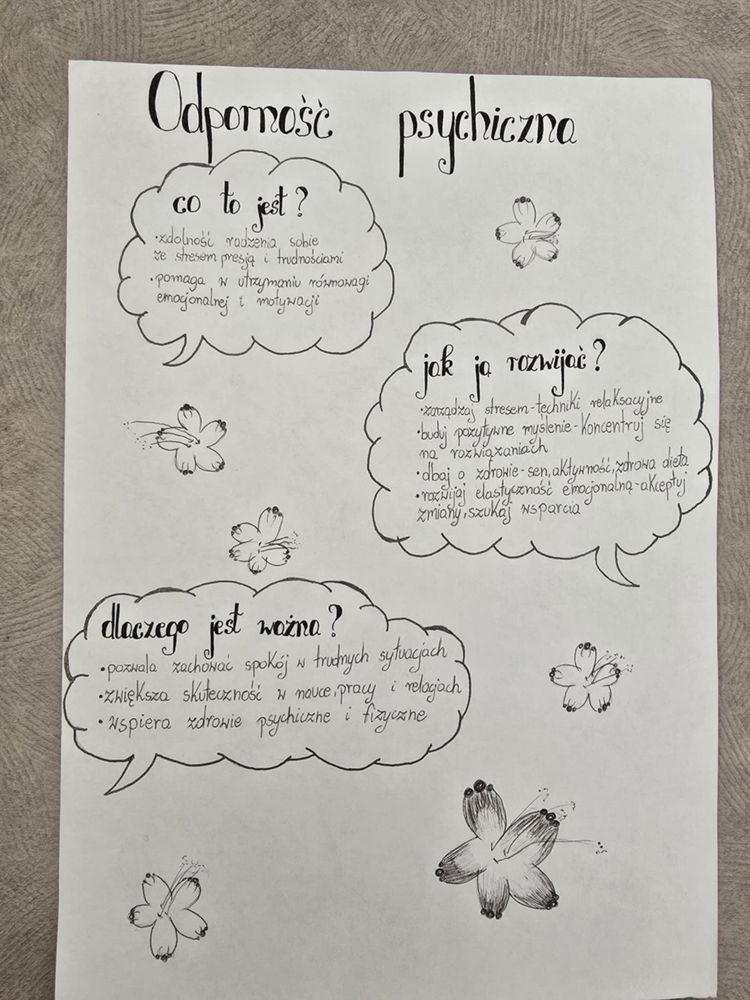 Odporność psychiczna
co to jest?
•zdolność radzenia sobie
ze stresem presją i trudnościami
•pomaga w utrzymaniu równowagi
emocjonalnej i motywacji
jak ją rozwijać?
•zarządzaj stresem-techniki relaksacyjne
•buduj pozytywne myślenie-koncentruj się
na rozwiązaniach
•dbaj o zdrowie-sen,aktywność,zdrowa dieta
•rozwijaj elastyczność emocjonalną-akceptuj
zmiany,szukaj wsparcia
dlaczego jest ważna?
•pozwala zachować spokój w trudnych sytuacjach
•zwiększa skuteczność w nauce,pracy i relacjach
•wspiera zdrowie psychiczne i fizyczne